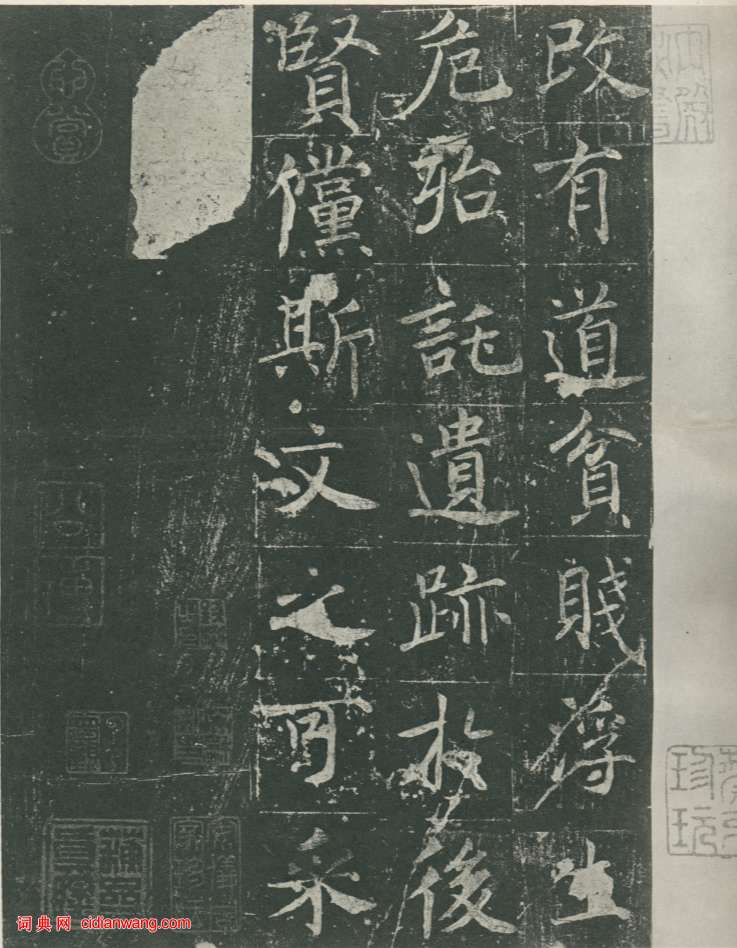 改有道貧賤浮生
危殆託遺跡於後
賢儻斯文之可采
珍玩
词典网 cidianwang.com